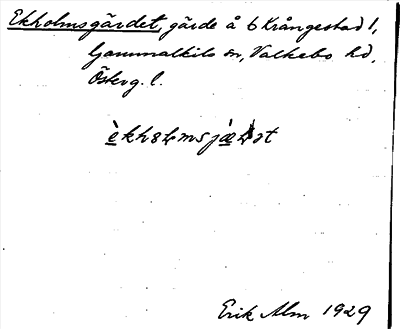 Ekholmsgärdet, gärde å 6 Krångestad 1,
Gammalkils sn, Valkebo hd,
Österg. l.
Erik Alm 1929